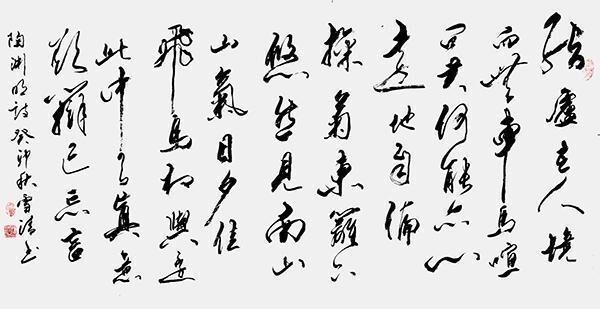 結廬在人境
而無車馬喧
問君何能爾心
遠地自偏
採菊東籬下
悠然見南山
山氣日夕佳
飛鳥相與還
此中有真意
欲辯已忘言
陶淵明詩癸卯秋雪书